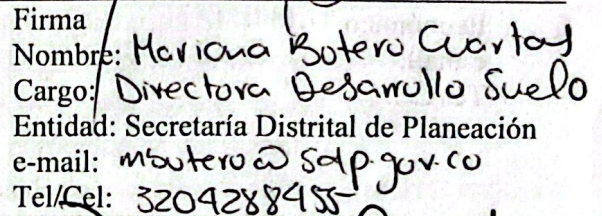 Firma
Nombre: Mariana Botero Cuartas
Cargo: Directora Desarrollo Suelo
Entidad: Secretaría Distrital de Planeación
e-mail: mbotero@sdp.gov.co
Tel/Cel: 3204288455